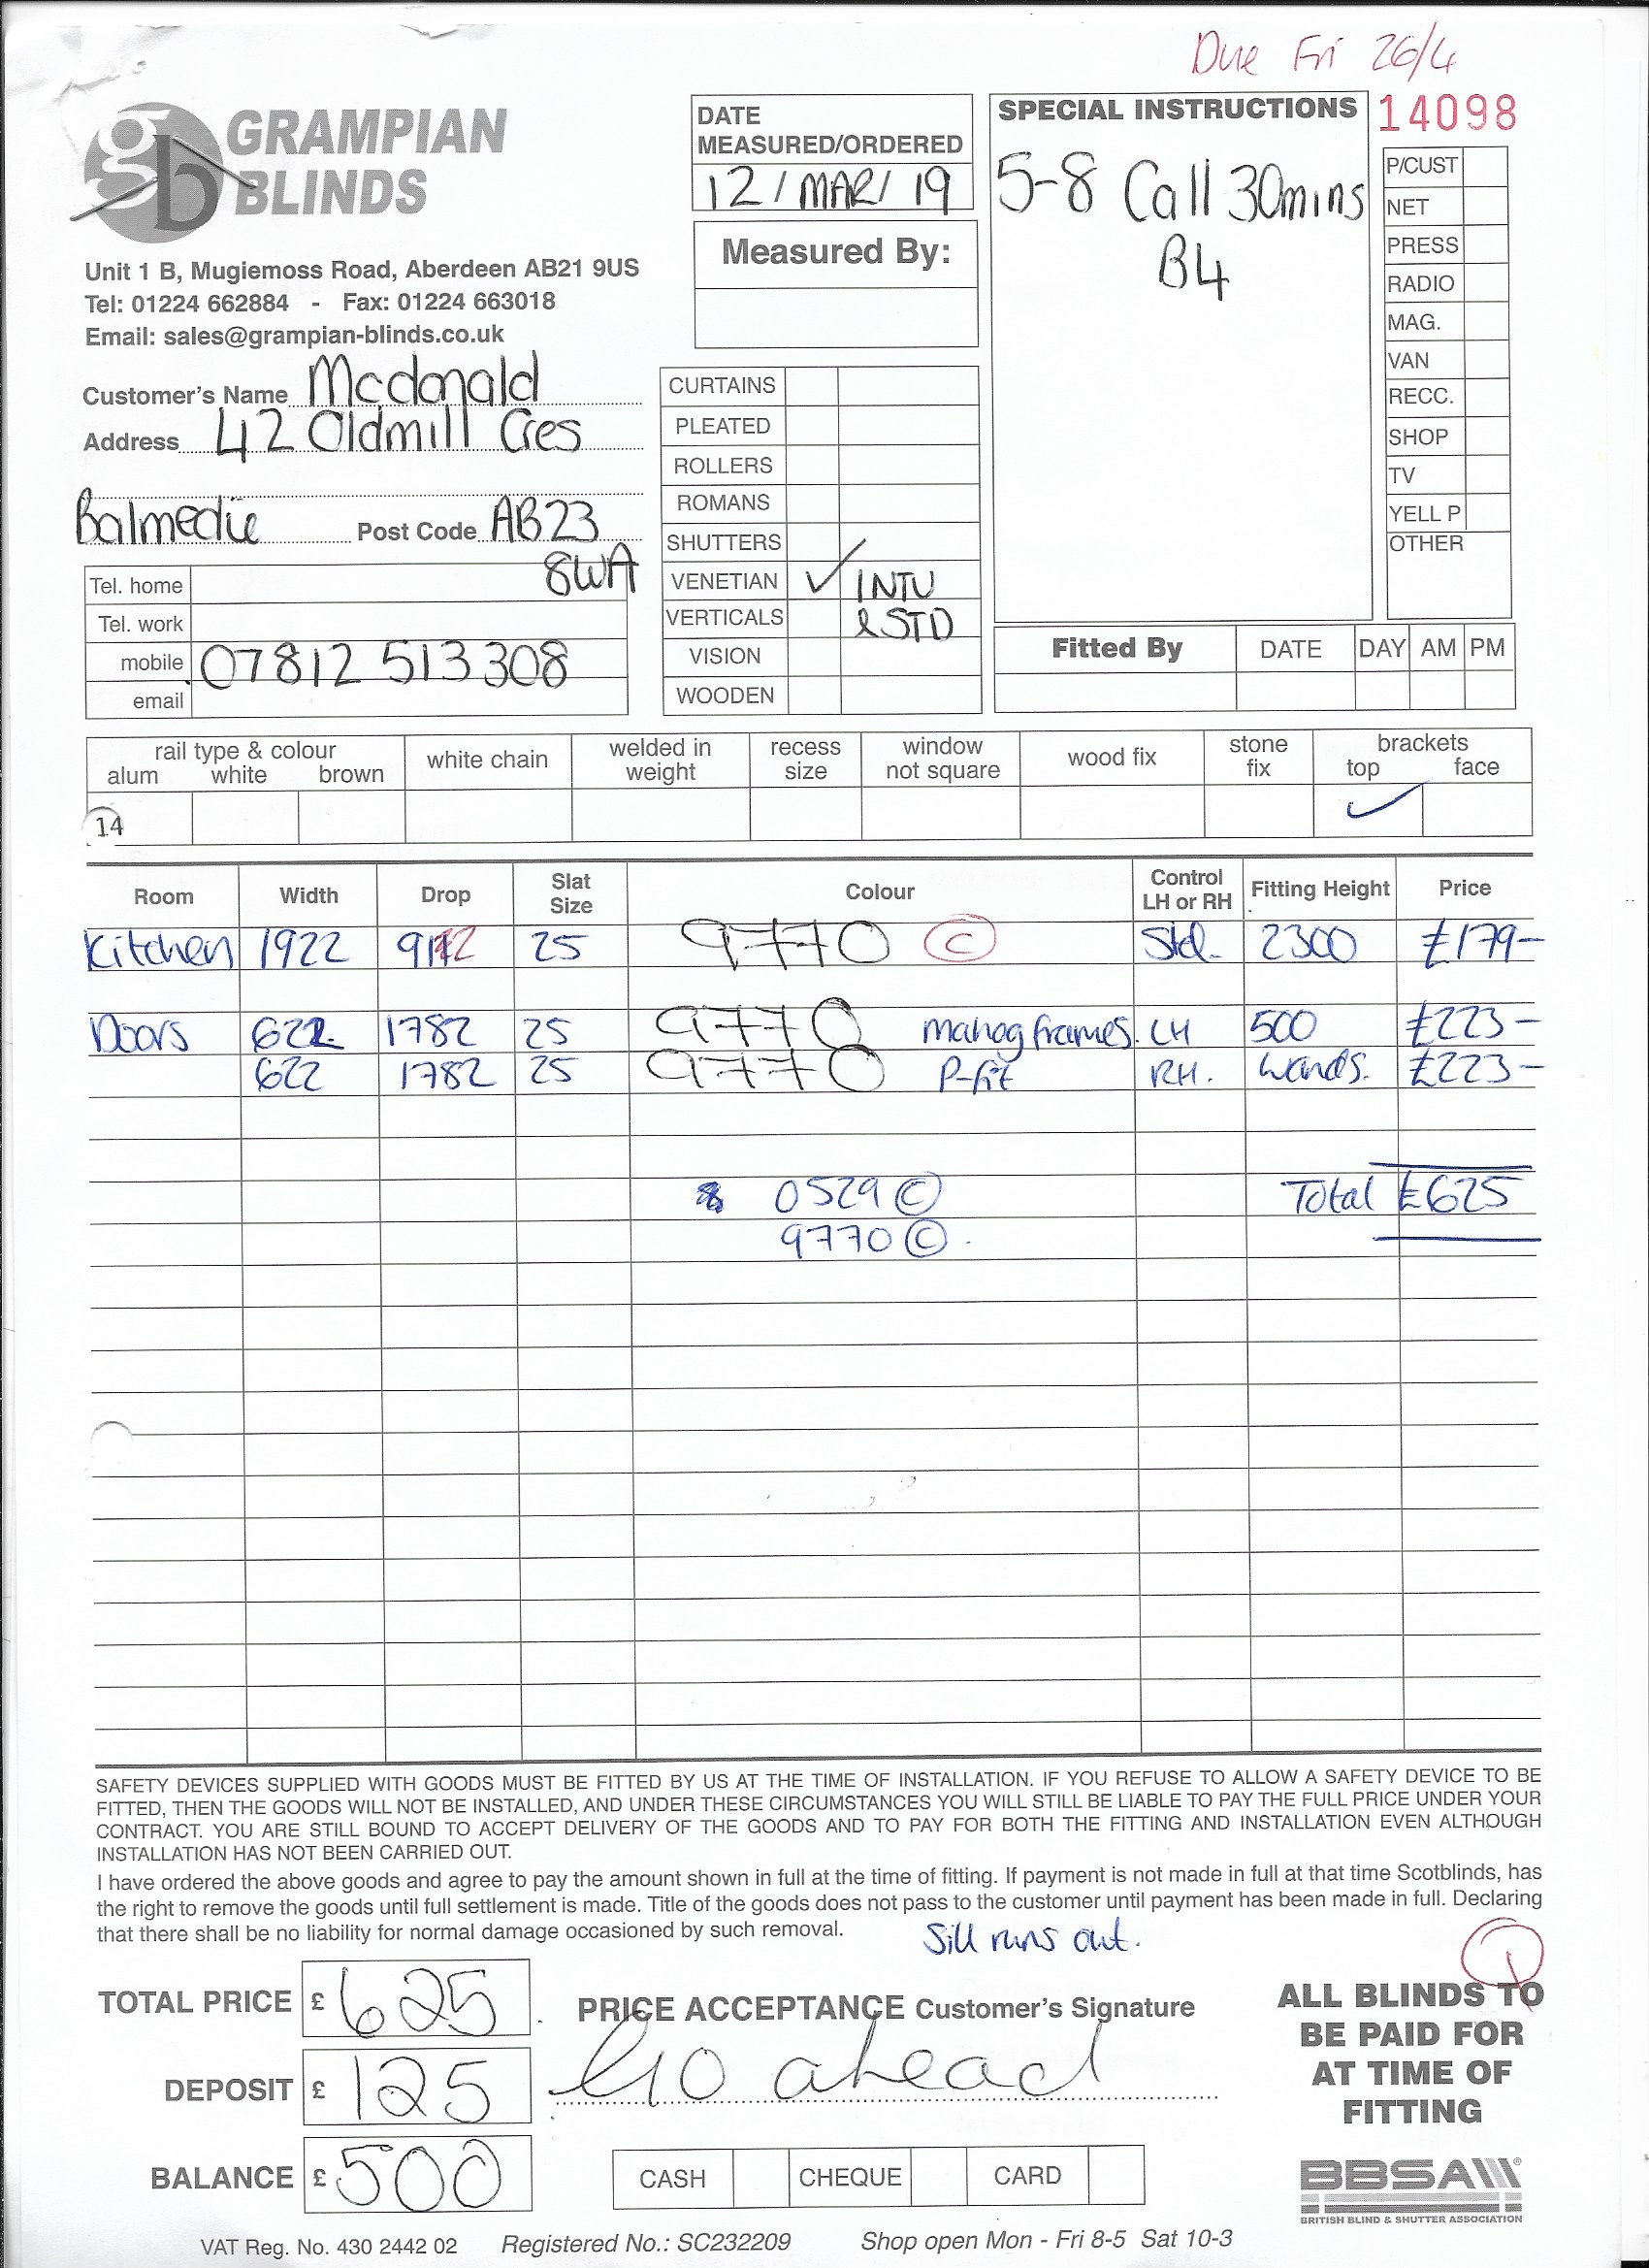 Due Fri 26/4
14098
gb GRAMPIAN
BLINDS
Unit 1 B, Mugiemoss Road, Aberdeen AB21 9US
Tel: 01224 662884 - Fax: 01224 663018
Email: sales@grampian-blinds.co.uk
Customer's Name Mcdonald
Address 42 Oldmill Cres
Balmedie Post Code AB23
8WA
Tel. home
Tel. work
mobile 07812 513308
email
DATE
MEASURED/ORDERED
12 / MAR / 19
Measured By:
CURTAINS
PLEATED
ROLLERS
ROMANS
SHUTTERS
VENETIAN ✓ INTU
VERTICALS & STD
VISION
WOODEN
SPECIAL INSTRUCTIONS
5-8 Call 30mins
B4
P/CUST
NET
PRESS
RADIO
MAG.
VAN
RECC.
SHOP
TV
YELL P
OTHER
Fitted By DATE DAY AM PM
rail type & colour white chain welded in weight recess size window not square wood fix stone fix brackets
alum white brown top face
14 ✓
Room Width Drop Slat Size Colour Control LH or RH Fitting Height Price
Kitchen 1922 25 9770 © Std. 2300 £179-
Doors 622 1782 25 9770 mahog frames. LH 500 £223-
622 1782 25 9770 P-fit RH. wands. £223-
0529 © Total £625
9770 © .
SAFETY DEVICES SUPPLIED WITH GOODS MUST BE FITTED BY US AT THE TIME OF INSTALLATION. IF YOU REFUSE TO ALLOW A SAFETY DEVICE TO BE
FITTED, THEN THE GOODS WILL NOT BE INSTALLED, AND UNDER THESE CIRCUMSTANCES YOU WILL STILL BE LIABLE TO PAY THE FULL PRICE UNDER YOUR
CONTRACT. YOU ARE STILL BOUND TO ACCEPT DELIVERY OF THE GOODS AND TO PAY FOR BOTH THE FITTING AND INSTALLATION EVEN ALTHOUGH
INSTALLATION HAS NOT BEEN CARRIED OUT.
I have ordered the above goods and agree to pay the amount shown in full at the time of fitting. If payment is not made in full at that time Scotblinds, has
the right to remove the goods until full settlement is made. Title of the goods does not pass to the customer until payment has been made in full. Declaring
that there shall be no liability for normal damage occasioned by such removal.
Sill runs out.
TOTAL PRICE £ 625
DEPOSIT £ 125
BALANCE £ 500
PRICE ACCEPTANCE Customer's Signature
Go ahead
CASH CHEQUE CARD
ALL BLINDS TO
BE PAID FOR
AT TIME OF
FITTING
BBSA ®
BRITISH BLIND & SHUTTER ASSOCIATION
VAT Reg. No. 430 2442 02 Registered No.: SC232209 Shop open Mon - Fri 8-5 Sat 10-3